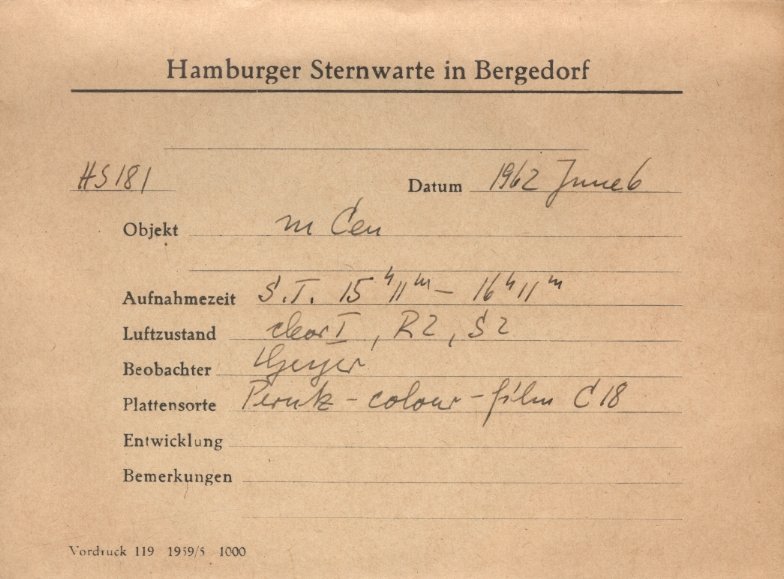 Hamburger Sternwarte in Bergedorf
HS 181 Datum 1962 June 6
Objekt m Cen
Aufnahmezeit S.T. 15ʰ11ᵐ – 16ʰ11ᵐ
Luftzustand clear I, R2, S2
Beobachter Geyer
Plattensorte Perutz-colour-film C18
Entwicklung
Bemerkungen
Vordruck 119 1959/5 1000